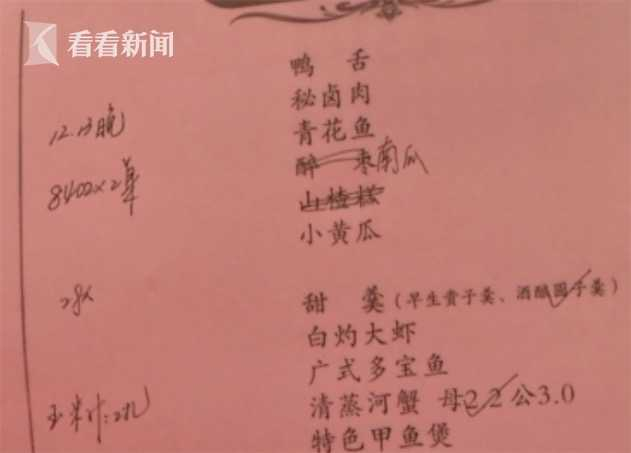 看看新闻
鸭 舌
秘卤肉
12.13晚 青花鱼
醉 枣 南瓜
8402×2单 山楂糕
小黄瓜
甜 羹(早生贵子羹、酒酿圆子羹)
白灼大虾
广式多宝鱼
玉米汁:2扎 清蒸河蟹 母2.2 公3.0
特色甲鱼煲